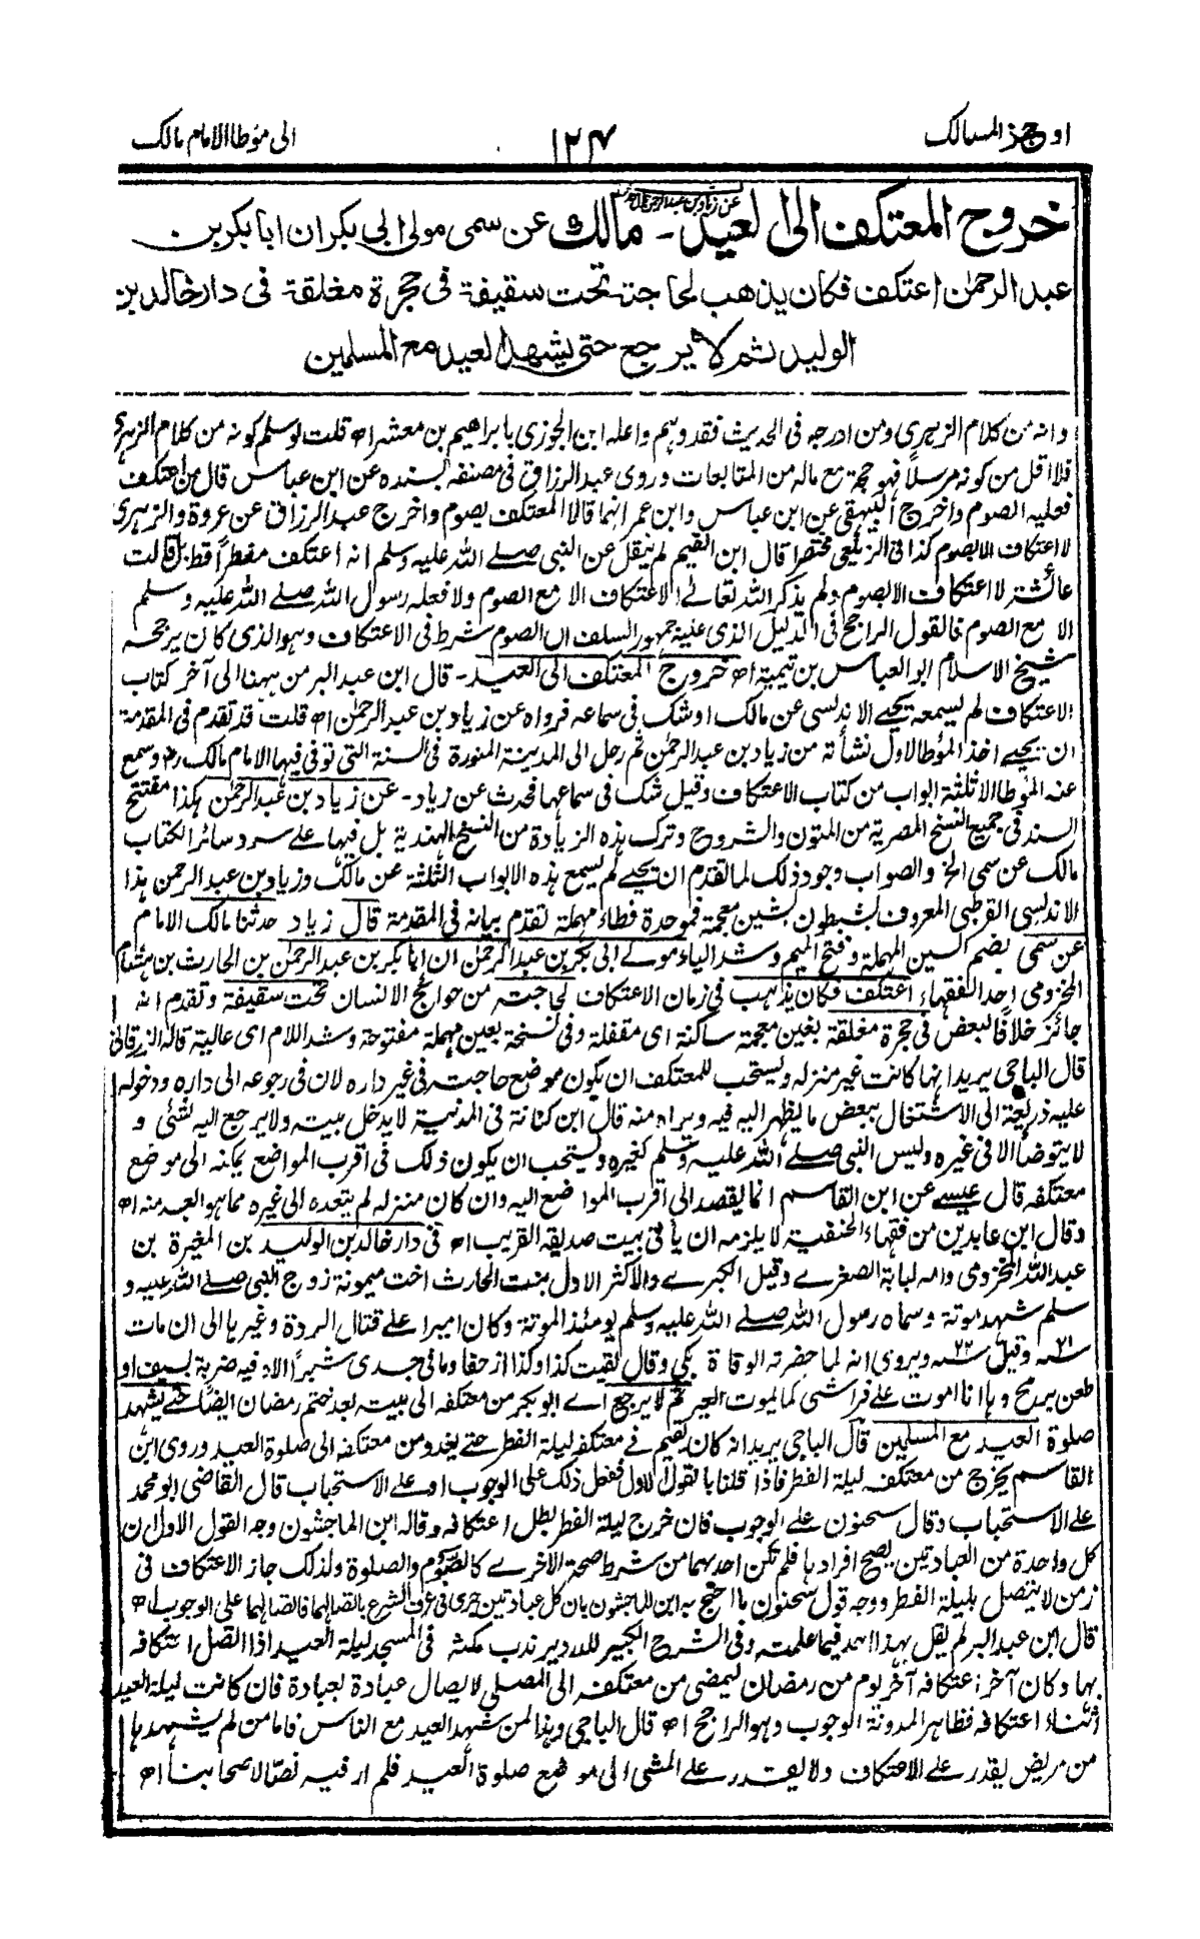 اوجز المسالك
١٢٤
الى مؤطا الامام مالك
خروج المعتكف الى العيد ـ مالك عن سمى مولى ابى بكر ان ابا بكر بن
عن زياد بن عبد الرحمن
عبد الرحمن اعتكف فكان يذهب لحاجته تحت سقيفة فى حجرة مغلقة فى دار خالد بن
الوليد ثم لا يرجع حتى يشهد العيد مع المسلمين
وانه من كلام الزهرى ومن ادرجه فى الحديث فقد وهم واعله ابن الجوزى بابراهيم بن معشر اھ قلت لو سلم كونه من كلام الزهرى
فلا اقل من كونه مرسلاً فهو حجة مع ماله من المتابعات وروى عبد الرزاق فى مصنفه بسنده عن ابن عباس قال من اعتكف
فعليه الصوم واخرج البيهقى عن ابن عباس وابن عمر انهما قالا المعتكف يصوم واخرج عبد الرزاق عن عروة والزهرى
لا اعتكاف الا بصوم كذا فى الزيلعى مختصرا قال ابن القيم لم ينقل عن النبى صلے الله عليه وسلم انه اعتكف مفطراً قط بل قالت
عائشة لا اعتكاف الا بصوم ولم يذكر الله تعالےٰ الاعتكاف الا مع الصوم ولا فعله رسول الله صلے الله عليه وسلم
الا مع الصوم فالقول الراجح فى الدليل الذى عليه جمهور السلف ان الصوم شرط فى الاعتكاف وهو الذى كان يرجحه
شيخ الاسلام ابو العباس بن تيمية اھ خروج المعتكف الى العيد ـ قال ابن عبد البر من ههنا الى آخر كتاب
الاعتكاف لم يسمعه يحيے الاندلسى عن مالك او شك فى سماعه فرواه عن زياد بن عبد الرحمن اھ قلت قد تقدم فى المقدمة
ان يحيے اخذ المؤطا لاول نشأته من زياد بن عبد الرحمن ثم رحل الى المدينة المنورة فى السنة التى توفى فيها الامام مالك رض وسمع
عنه المؤطا الا ثلثة ابواب من كتاب الاعتكاف وقيل شك فى سماعها فحدث عن زياد ـ عن زياد بن عبد الرحمن هكذا مفتتح
السند فى جميع النسخ المصرية من المتون والشروح وترك هذه الزيادة من النسخ الهندية بل فيها على سرد سائر الكتاب
مالك عن سمى الخ والصواب وجود ذلك لما تقدم ان يحيے لم يسمع هذه الابواب الثلثة عن مالك وزياد بن عبد الرحمن هذا
الاندلسى القرطبى المعروف بشبطون بشين معجمة فموحدة فطاء مهملة تقدم بيانه فى المقدمة قال زياد حدثنا مالك الامام
عن سمى بضم السين المهملة وفتح الميم وشد الياء مولے ابى بكر بن عبد الرحمن ان ابا بكر بن عبد الرحمن بن الحارث بن هشام
المخزومى احد الفقهاء اعتكف فكان يذهب فى زمان الاعتكاف لحاجته من حوائج الانسان تحت سقيفة وتقدم انه
جائز خلافا لبعض فى حجرة مغلقة بغين معجمة ساكنة اى مقفلة وفى نسخة بعين مهملة مفتوحة وشد اللام اى عالية قاله الزرقانى
قال الباجى يريد انها كانت غير منزله ويستحب للمعتكف ان يكون موضع حاجته فى غير داره لان فى رجوعه الى داره ودخوله
عليه ذريعة الى الاشتغال ببعض ما يظهر اليه فيه ويراه منه قال ابن كنانة فى المدنية لا يدخل بيته ولا يرجع اليه لشئى و
لا يتوضأ الا فى غيره وليس النبى صلے الله عليه وسلم كغيره ويستحب ان يكون ذلك فى اقرب المواضع يمكنه الى موضع
معتكفه قال عيسے عن ابن القاسم انما يقصد الى اقرب المواضع اليه وان كان منزله لم يتعده الى غيره مما هو ابعد منه اھ
وقال ابن عابدين من فقهاء الحنفية لا يلزمه ان ياتى بيت صديقه القريب اھ فى دار خالد بن الوليد بن المغيرة بن
عبد الله المخزومى وامه لبابة الصغرے وقيل الكبرے والاكثر الاول بنت الحارث اخت ميمونة زوج النبى صلے الله عليه و
سلم شهد موتة وسماه رسول الله صلے الله عليه وسلم يومئذ الموتة وكان اميرا علے قتال الردة وغيرها الى ان مات
سنہ ٢١ وقيل سنہ ٢٢ ويروى انه لما حضرته الوفاة بكى وقال لقيت كذا وكذا زحفا وما فى جسدى شبراً الا وفيه ضربة بسيف او
طعن برمح وها انا اموت علے فراشى كما يموت العير ثم لا يرجع اے ابو بكر من معتكفه الى بيته بعد ختم رمضان ايضا حتے يشهد
صلوة العيد مع المسلمين قال الباجى يريد انه كان يقيم فے معتكفه ليلة الفطر حتے يغدو من معتكفه الى صلوة العيد وروى ابن
القاسم يخرج من معتكفه ليلة الفطر فاذا قلنا بالقول الاول ففعل ذلك على الوجوب او علے الاستحباب قال القاضى ابو محمد
علے الاستحباب وقال سحنون علے الوجوب فان خرج ليلة الفطر بطل اعتكافه وقاله ابن الماجشون وجه القول الاول ان
كل واحدة من العبادتين يصح افرادها فلم تكن احدهما من شرط صحة الاخرے كالصوم والصلوة ولذلك جاز الاعتكاف فى
زمن لا يتصل بليلة الفطر ووجه قول سحنون ما احتج به ابن الماجشون بان كل عبادتين جرى فى عرف الشرع باتصالهما فاتصالهما على الوجوب اھ
قال ابن عبد البر لم يقل بهذا احد فيما علمت وفى الشرح الكبير للدردير ندب مكثه فى المسجد ليلة العيد اذا اتصل اعتكافه
بها وكان آخر اعتكافه آخر يوم من رمضان ليمضى من معتكفه الى المصلى لايصال عبادة لعبادة فان كانت ليلة العيد
اثناء اعتكافه فظاهر المدونة الوجوب وهو الراجح اھ قال الباجى وهذا لمن شهد العيد مع الناس فاما من لم يشهدها
من مريض يقدر علے الاعتكاف ولا يقدر علے المشى الى موضع صلوة العيد فلم ار فيه نصا لاصحابنا اھ